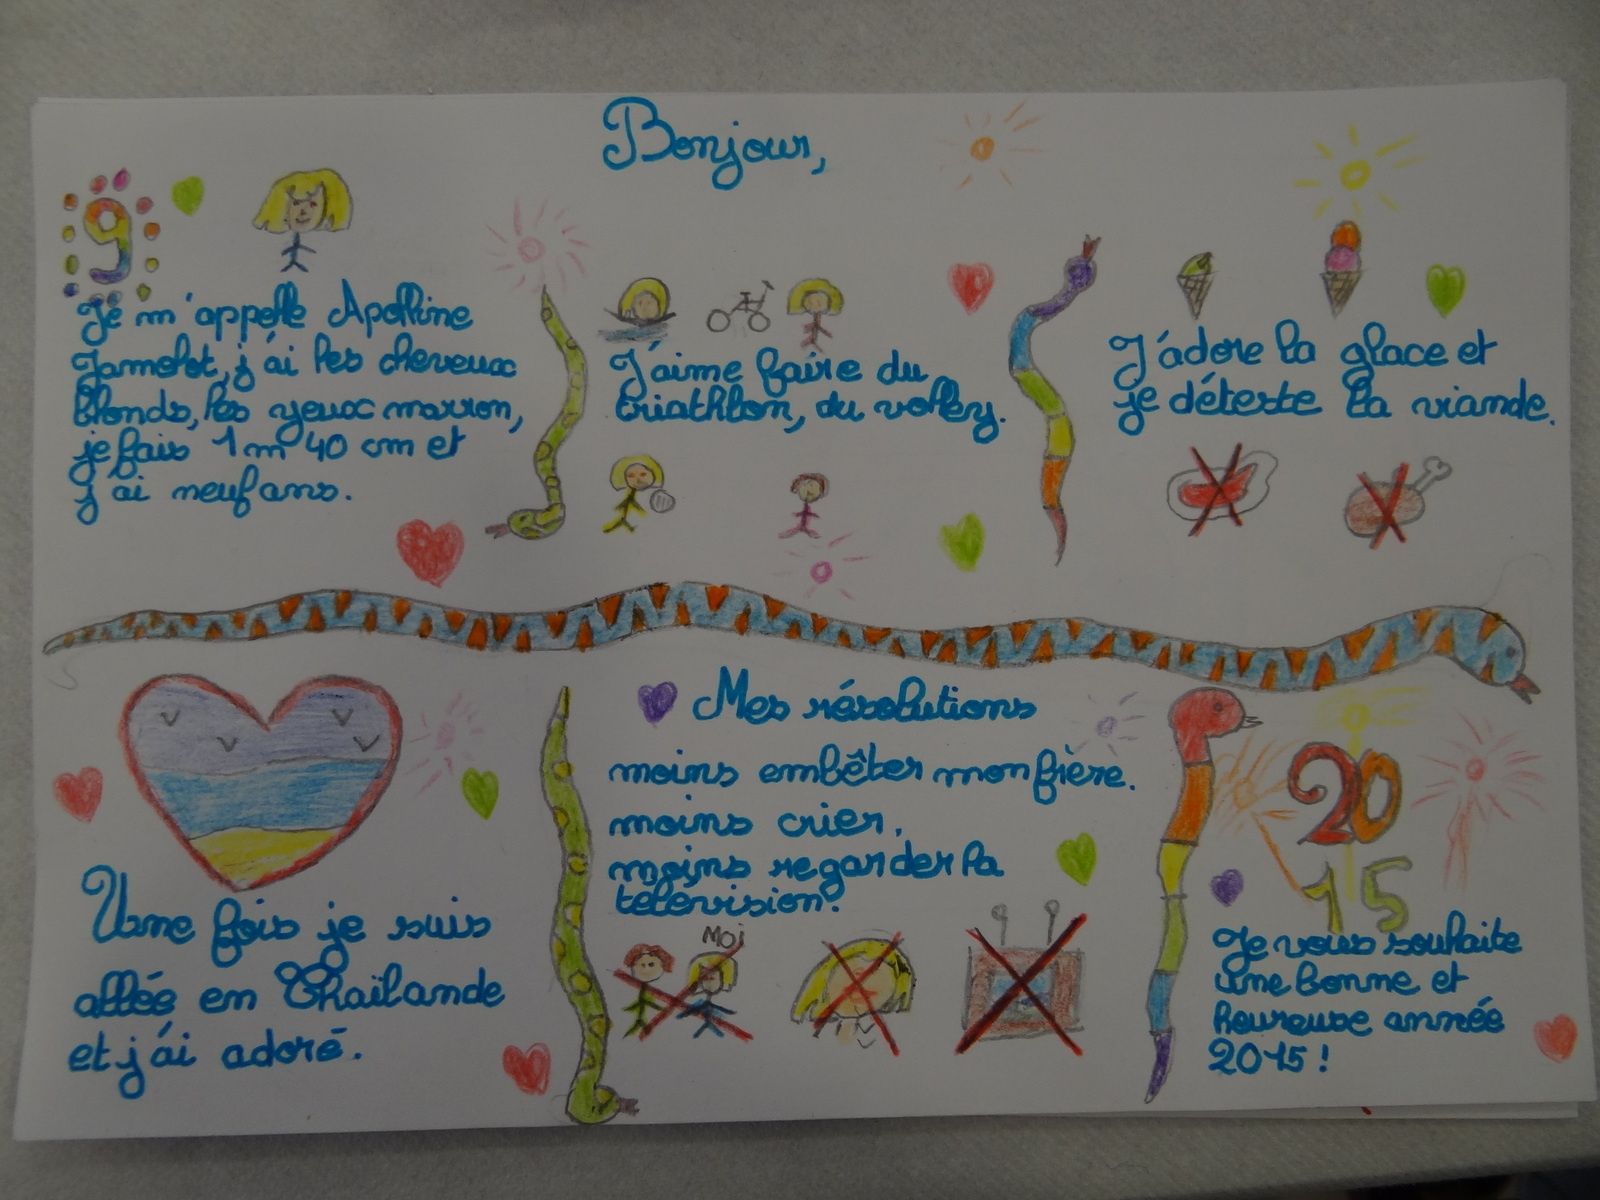 Bonjour,
9
Je m'appelle Apolline
Jamelot, j'ai les cheveux
blonds, les yeux marron,
je fais 1 m 40 cm et
j'ai neuf ans.
J'aime faire du
triathlon, du volley.
J'adore la glace et
je déteste la viande.
Une fois je suis
allée en Thaïlande
et j'ai adoré.
Mes résolutions
moins embêter mon frère.
moins crier.
moins regarder la
télévision.
Moi
20
15
Je vous souhaite
une bonne et
heureuse année
2015 !